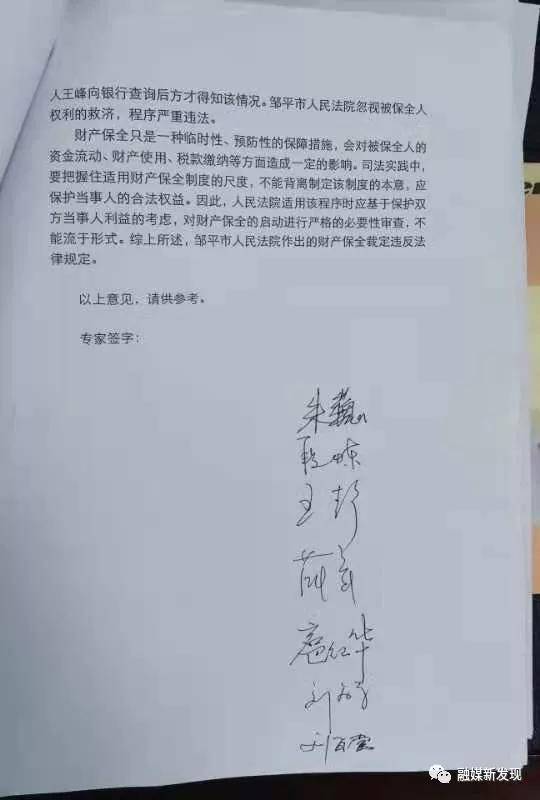 人王峰向银行查询后方才得知该情况。邹平市人民法院忽视被保全人
权利的救济，程序严重违法。
财产保全只是一种临时性、预防性的保障措施，会对被保全人的
资金流动、财产使用、税款缴纳等方面造成一定的影响。司法实践中，
要把握住适用财产保全制度的尺度，不能背离制定该制度的本意，应
保护当事人的合法权益。因此，人民法院适用该程序时应基于保护双
方当事人利益的考虑，对财产保全的启动进行严格的必要性审查，不
能流于形式。综上所述，邹平市人民法院作出的财产保全裁定违反法
律规定。
以上意见，请供参考。
专家签字：
朱巍
王彭
红华
刘
刘百堂
融媒新发现